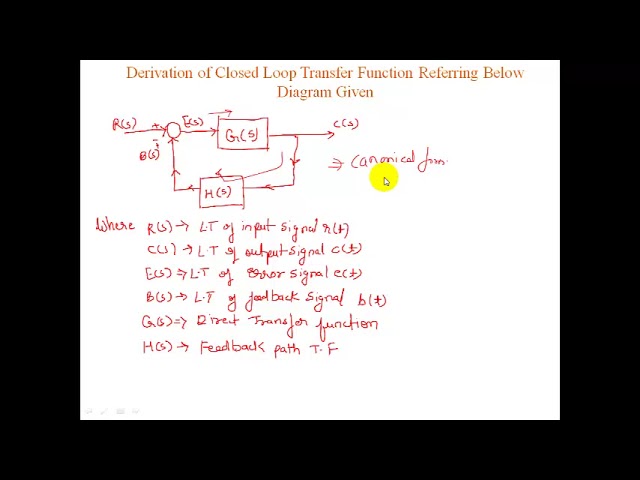 Derivation of Closed Loop Transfer Function Referring Below
Diagram Given
R(s) + E(s) G(s) C(s)
B(s) -
H(s)
⇒ Canonical form.
Where R(s) → L.T of input signal r(t)
C(s) → L.T of output signal c(t)
E(s) ⇒ L.T of error signal e(t)
B(s) → L.T of feedback signal b(t)
G(s) ⇒ Direct Transfer function
H(s) → Feedback path T.F